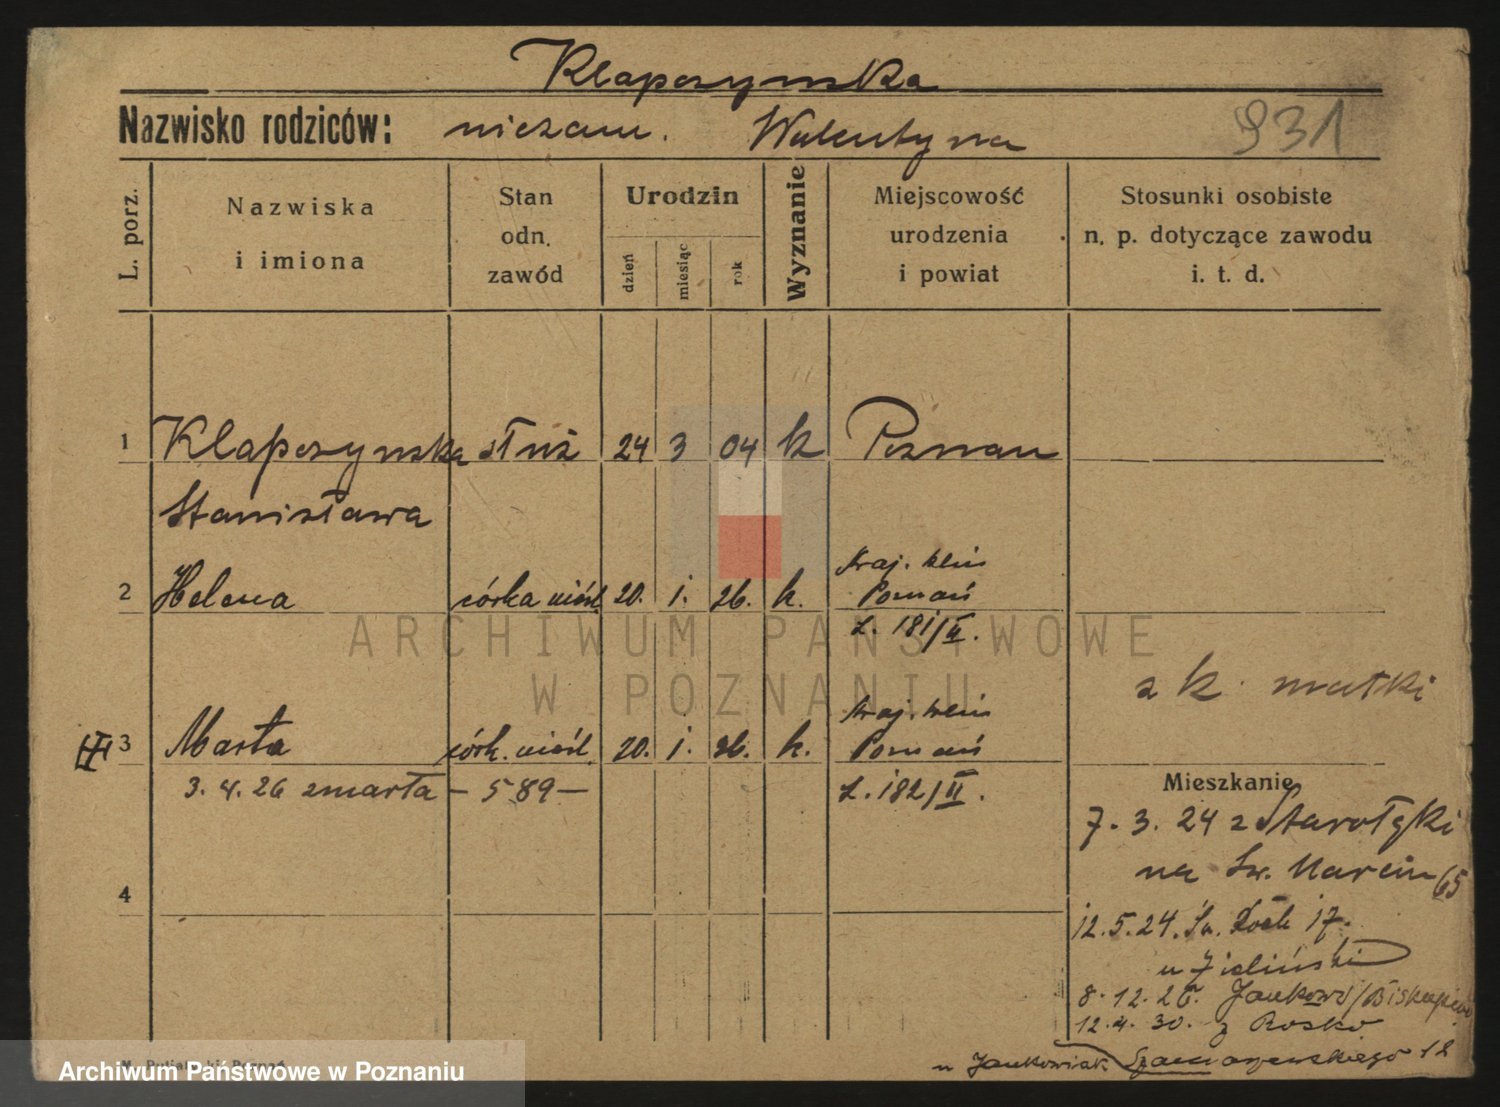 Klapczynska
Nazwisko rodziców: niezam. Walentyna 931
L. porz.
Nazwiska
i imiona
Stan
odn.
zawód
Urodzin
dzień
miesiąc
rok
Wyznanie
Miejscowość
urodzenia
i powiat
Stosunki osobiste
n. p. dotyczące zawodu
i. t. d.
1 Klapczynska służ 24 3 04 k Poznan
Stanisława
Kraj. klin
2 Helena córka nieśl. 20. 1. 26. k. Poznań
L. 181/II.
ARCHIWUM PAŃSTWOWE
W POZNANIU
z k. matki
Kraj. klin
3 Marta córk. nieśl. 20. 1. 26. k. Poznań
3. 4. 26 zmarła — 589 — L. 182/II.
Mieszkanie
7. 3. 24 z Starołęki
na Św. Marcin 65
4
12. 5. 24. Św. Roch 17.
u Zieliński
8. 12. 26. Jankowo/
12. 4. 30. z Rosko
u Jankowiak 12
Archiwum Państwowe w Poznaniu